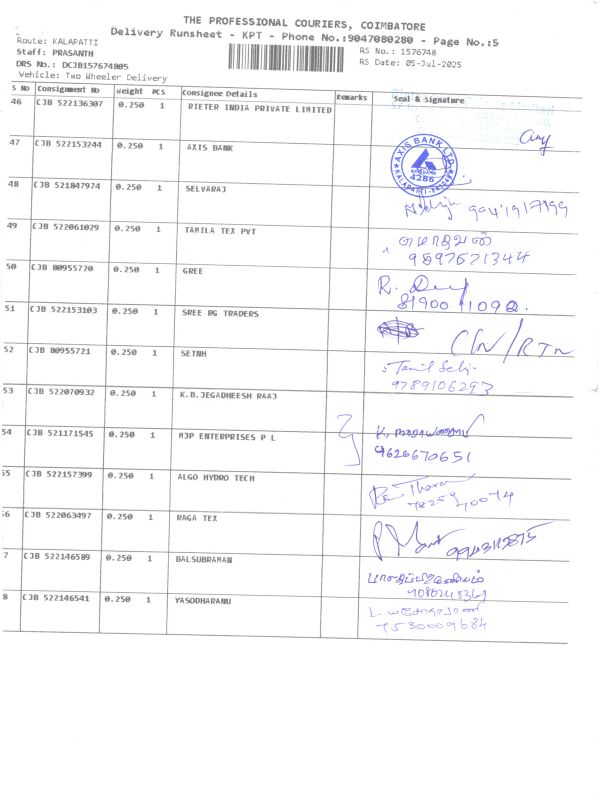 THE PROFESSIONAL COURIERS, COIMBATORE
Delivery Runsheet - KPT - Phone No.:9047080280 - Page No.:5
Route: KALAPATTI
Staff: PRASANTH
DRS No.: DCJB157674805
Vehicle: Two Wheeler Delivery
RS No.: 1576748
RS Date: 05-Jul-2025
S No Consignment No Weight PCS Consignee Details Remarks Seal & Signature
46 CJB 522136307 0.250 1 RIETER INDIA PRIVATE LIMITED
47 CJB 522153244 0.250 1 AXIS BANK
AXIS BANK LTD.
AXIS BANK
4286
48 CJB 521847974 0.250 1 SELVARAJ
9941917199
49 CJB 522061029 0.250 1 TAMILA TEX PVT
9597671344
50 CJB 80955720 0.250 1 GREE
R.
51 CJB 522153103 0.250 1 SREE RG TRADERS
/RTN
52 CJB 80955721 0.250 1 SETNH
Tamil Selvi
9789106293
53 CJB 522070932 0.250 1 K.B.JEGADHEESH RAAJ
54 CJB 521171545 0.250 1 MJP ENTERPRISES P L
9626670651
55 CJB 522157399 0.250 1 ALGO HYDRO TECH
56 CJB 522063497 0.250 1 RAGA TEX
7 CJB 522146589 0.250 1 BALSUBRAMAN
8 CJB 522146541 0.250 1 YASODHARANU
7530009684